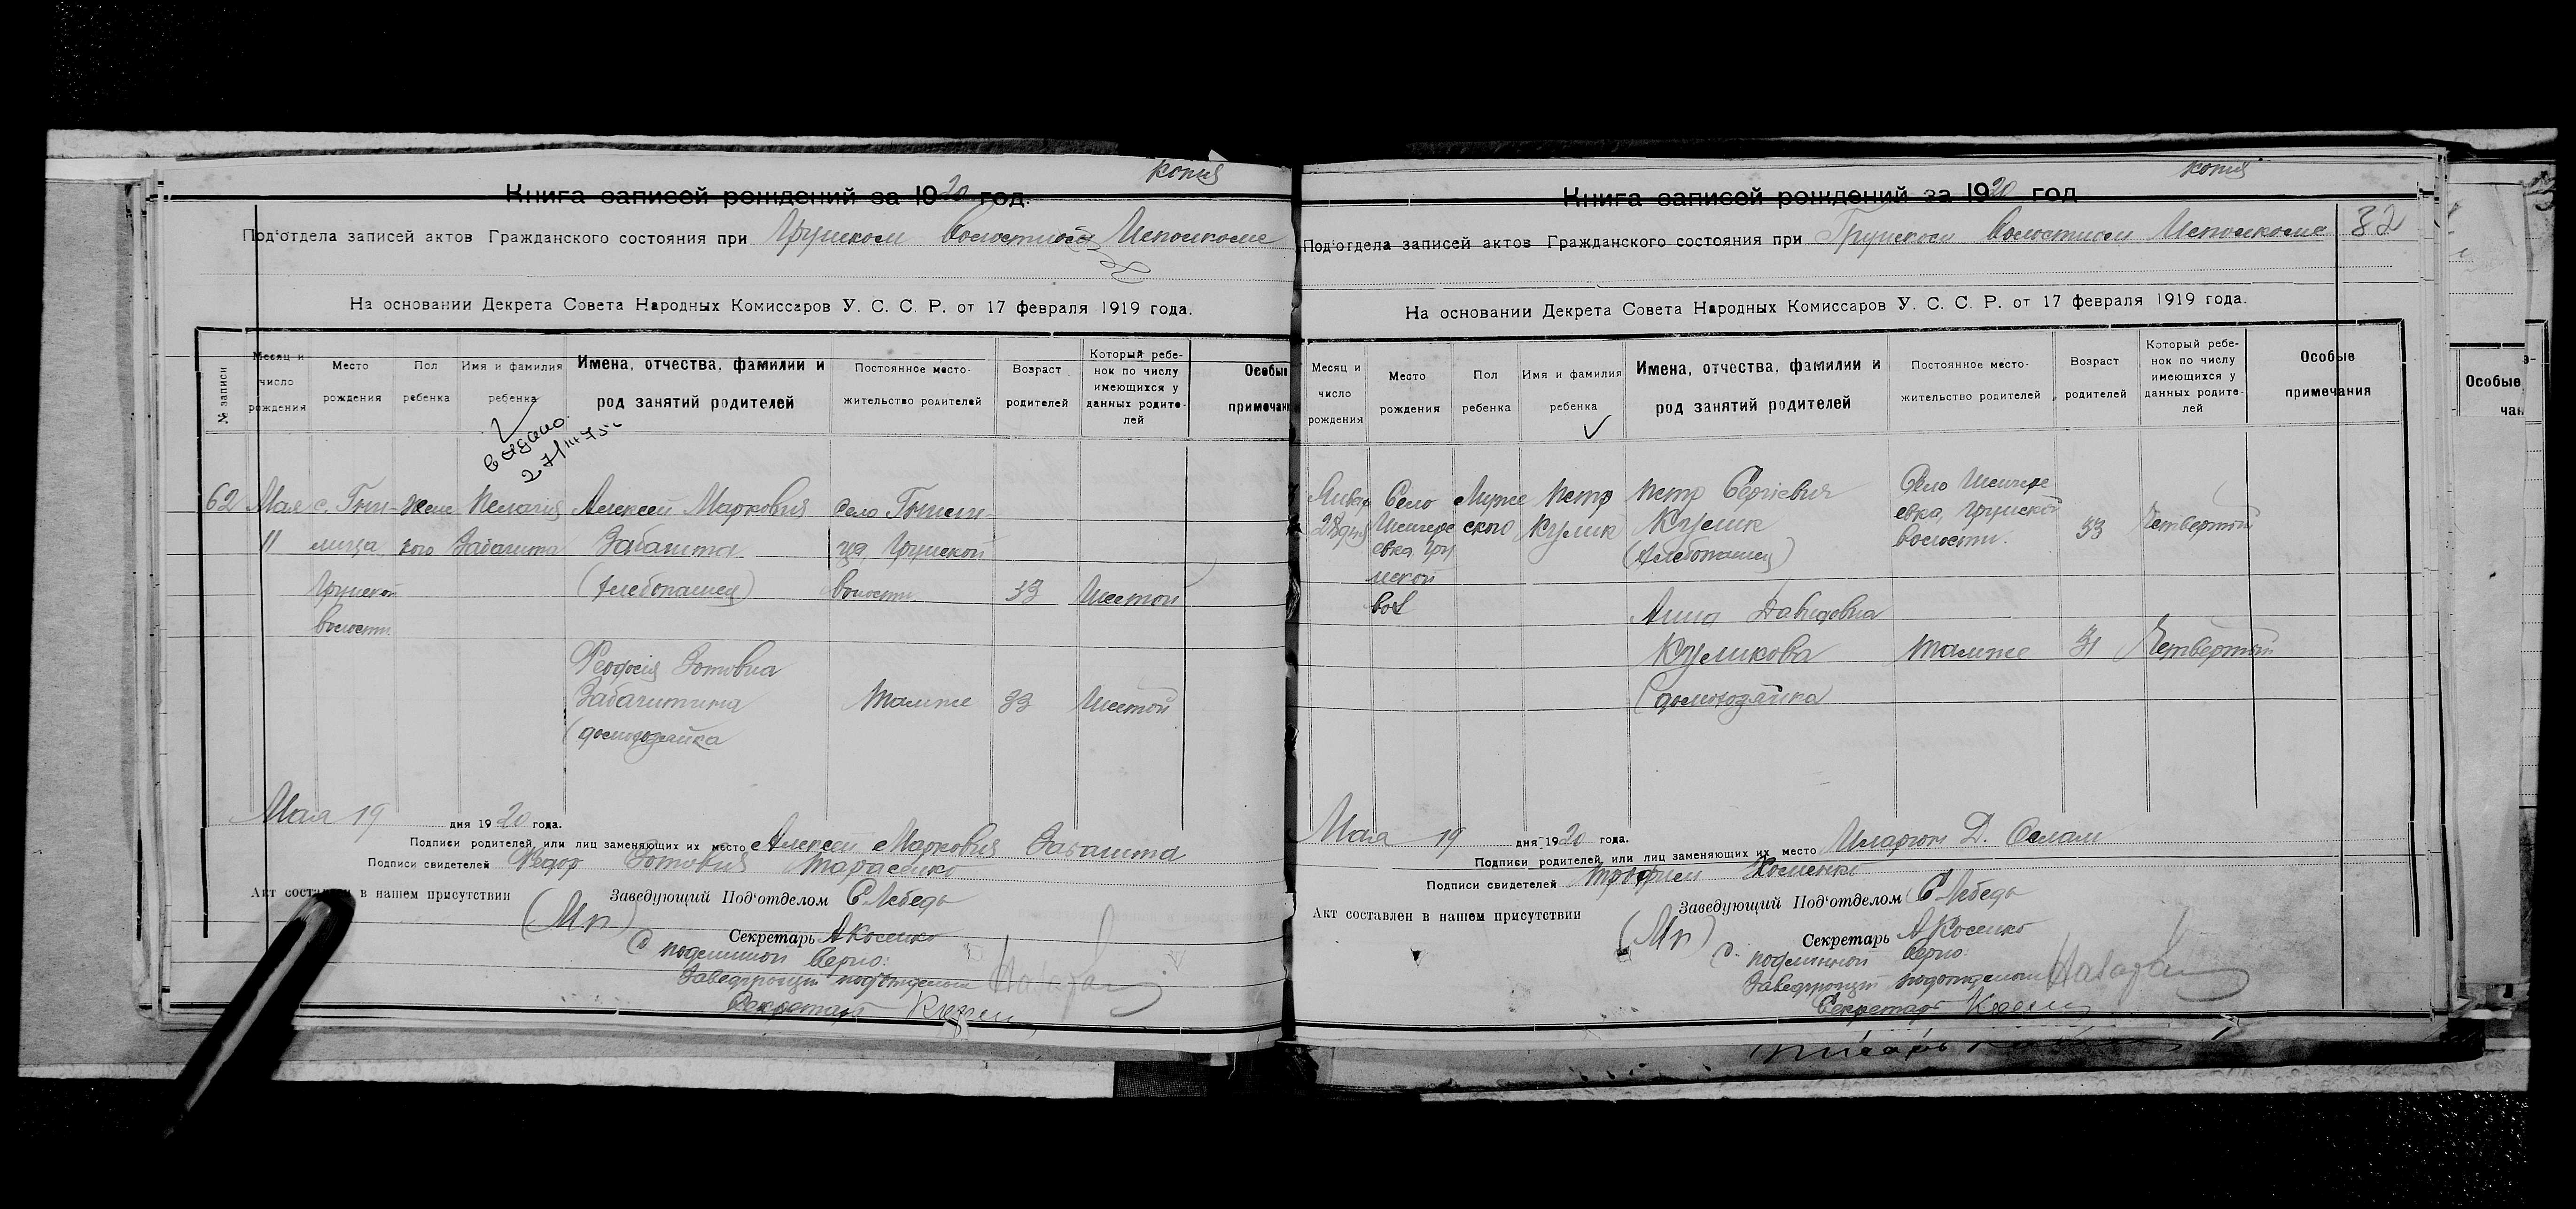 копия
Книга записей рождений за 1920 год.
Под'отдела записей актов Гражданского состояния при Грунском Волостном Исполкоме
На основании Декрета Совета Народных Комиссаров У. С. С. Р. от 17 февраля 1919 года.
№ записи
Месяц и число рождения
Место рождения
Пол ребенка
Имя и фамилия ребенка
Имена, отчества, фамилии и род занятий родителей
Постоянное место-жительство родителей
Возраст родителей
Который ребе-нок по числу имеющихся у данных родите-лей
Особые
примечан
62 Мая с. Гни- Жен Пелагия Алексей Маркович Села Гнили-
11 лица кого Забашта Забашта ца Грунской
Грунской (хлебопашец) волости. 33 Шестой
волости
Феодосия Зотовна
Забаштина Тамже 33 Шестой
(домохозяйка
Мая 19 дня 1920 года.
Подписи родителей или лиц заменяющих их место Алексей Маркович Забашта
Подписи свидетелей Федор Зотович Тарасенко
Акт составлен в нашем присутствии Заведующий Под'отделом С Лебедь
(Мп) Секретарь А Косенко
С подлинной верно:
Заведующий подотделом
Секретарь
копия
Книга записей рождений за 1920 год
Под'отдела записей актов Гражданского состояния при Грунском Волостном Исполкоме 32
На основании Декрета Совета Народных Комиссаров У. С. С. Р. от 17 февраля 1919 года.
Месяц и число рождения
Место рождения
Пол ребенка
Имя и фамилия ребенка
Имена, отчества, фамилии и род занятий родителей
Постоянное место-жительство родителей
Возраст родителей
Который ребе-нок по числу имеющихся у данных родите-лей
Особые примечания
Январ Село Муже Петр Петр Сергіевич Село
28 дня ского Кулик Кулик евка, Грунской 33 Четвертый
евка Гру (хлебопашец) волости.
нской
вол
Анна Давидовна
Куликова Тамже 31 Четвертый
(домохозяйка
Мая 19 дня 1920 года.
Подписи родителей или лиц заменяющих их место Иларион Д.
Подписи свидетелей Трофим Хоменко
Акт составлен в нашем присутствии Заведующий Под'отделом С Лебедь
(Мп) Секретарь А Косенко
С подлинной верно:
Заведующий подотделом
Секретарь
Особые
чан